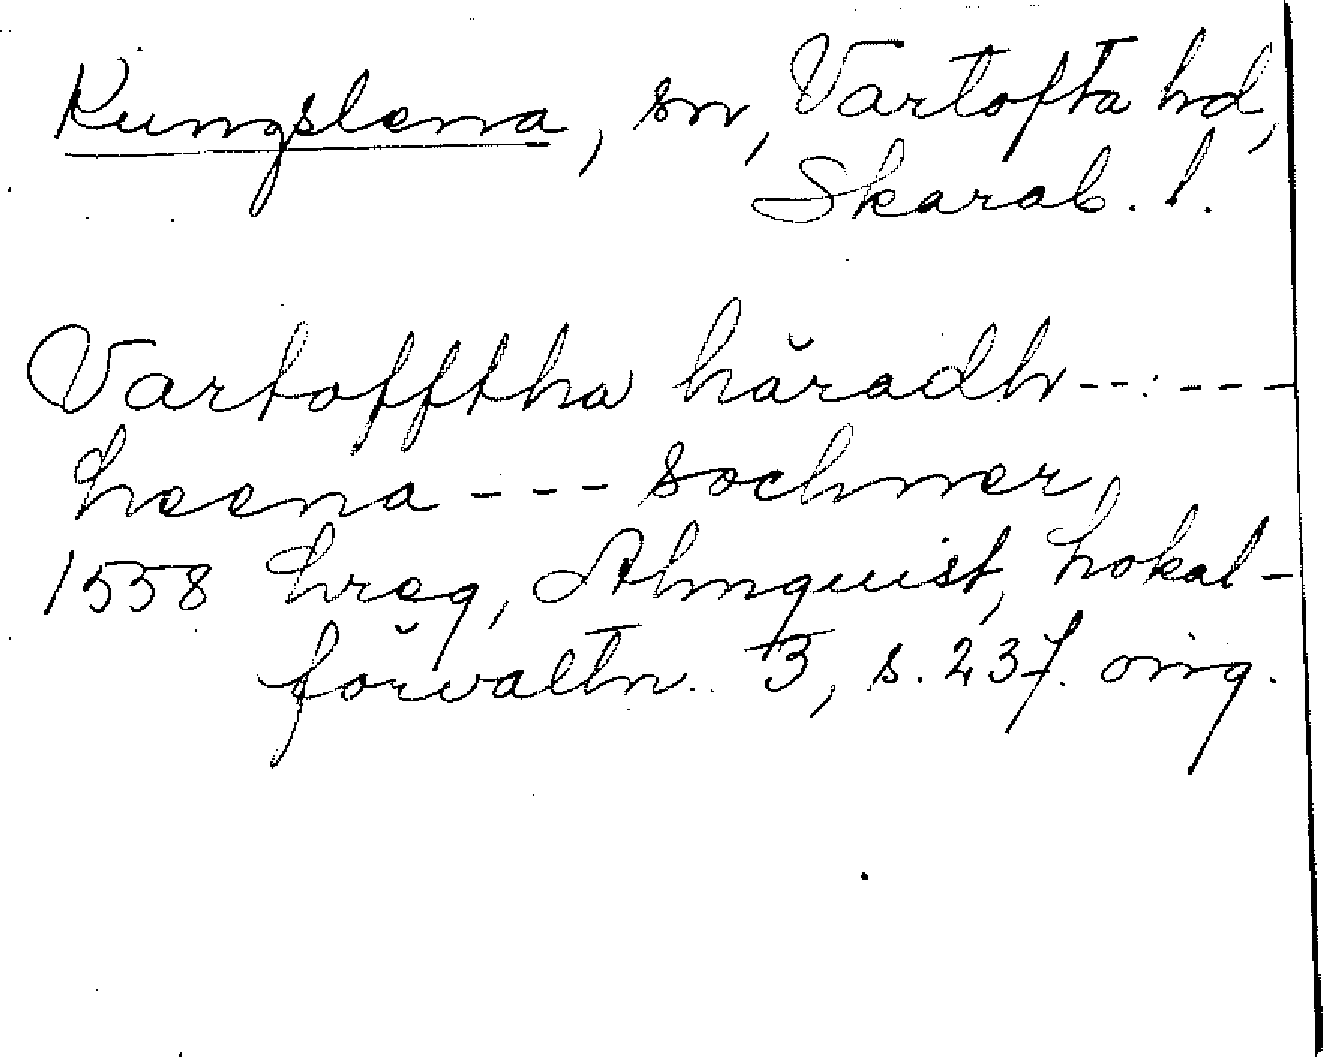 Kungslena, sn, Vartofta hd,
Skarab. l.
Vartofftha häradh -----
Leena --- sochner,
1558 Lreg, Almquist, Lokal-
förvaltn. 3, s. 237. orig.